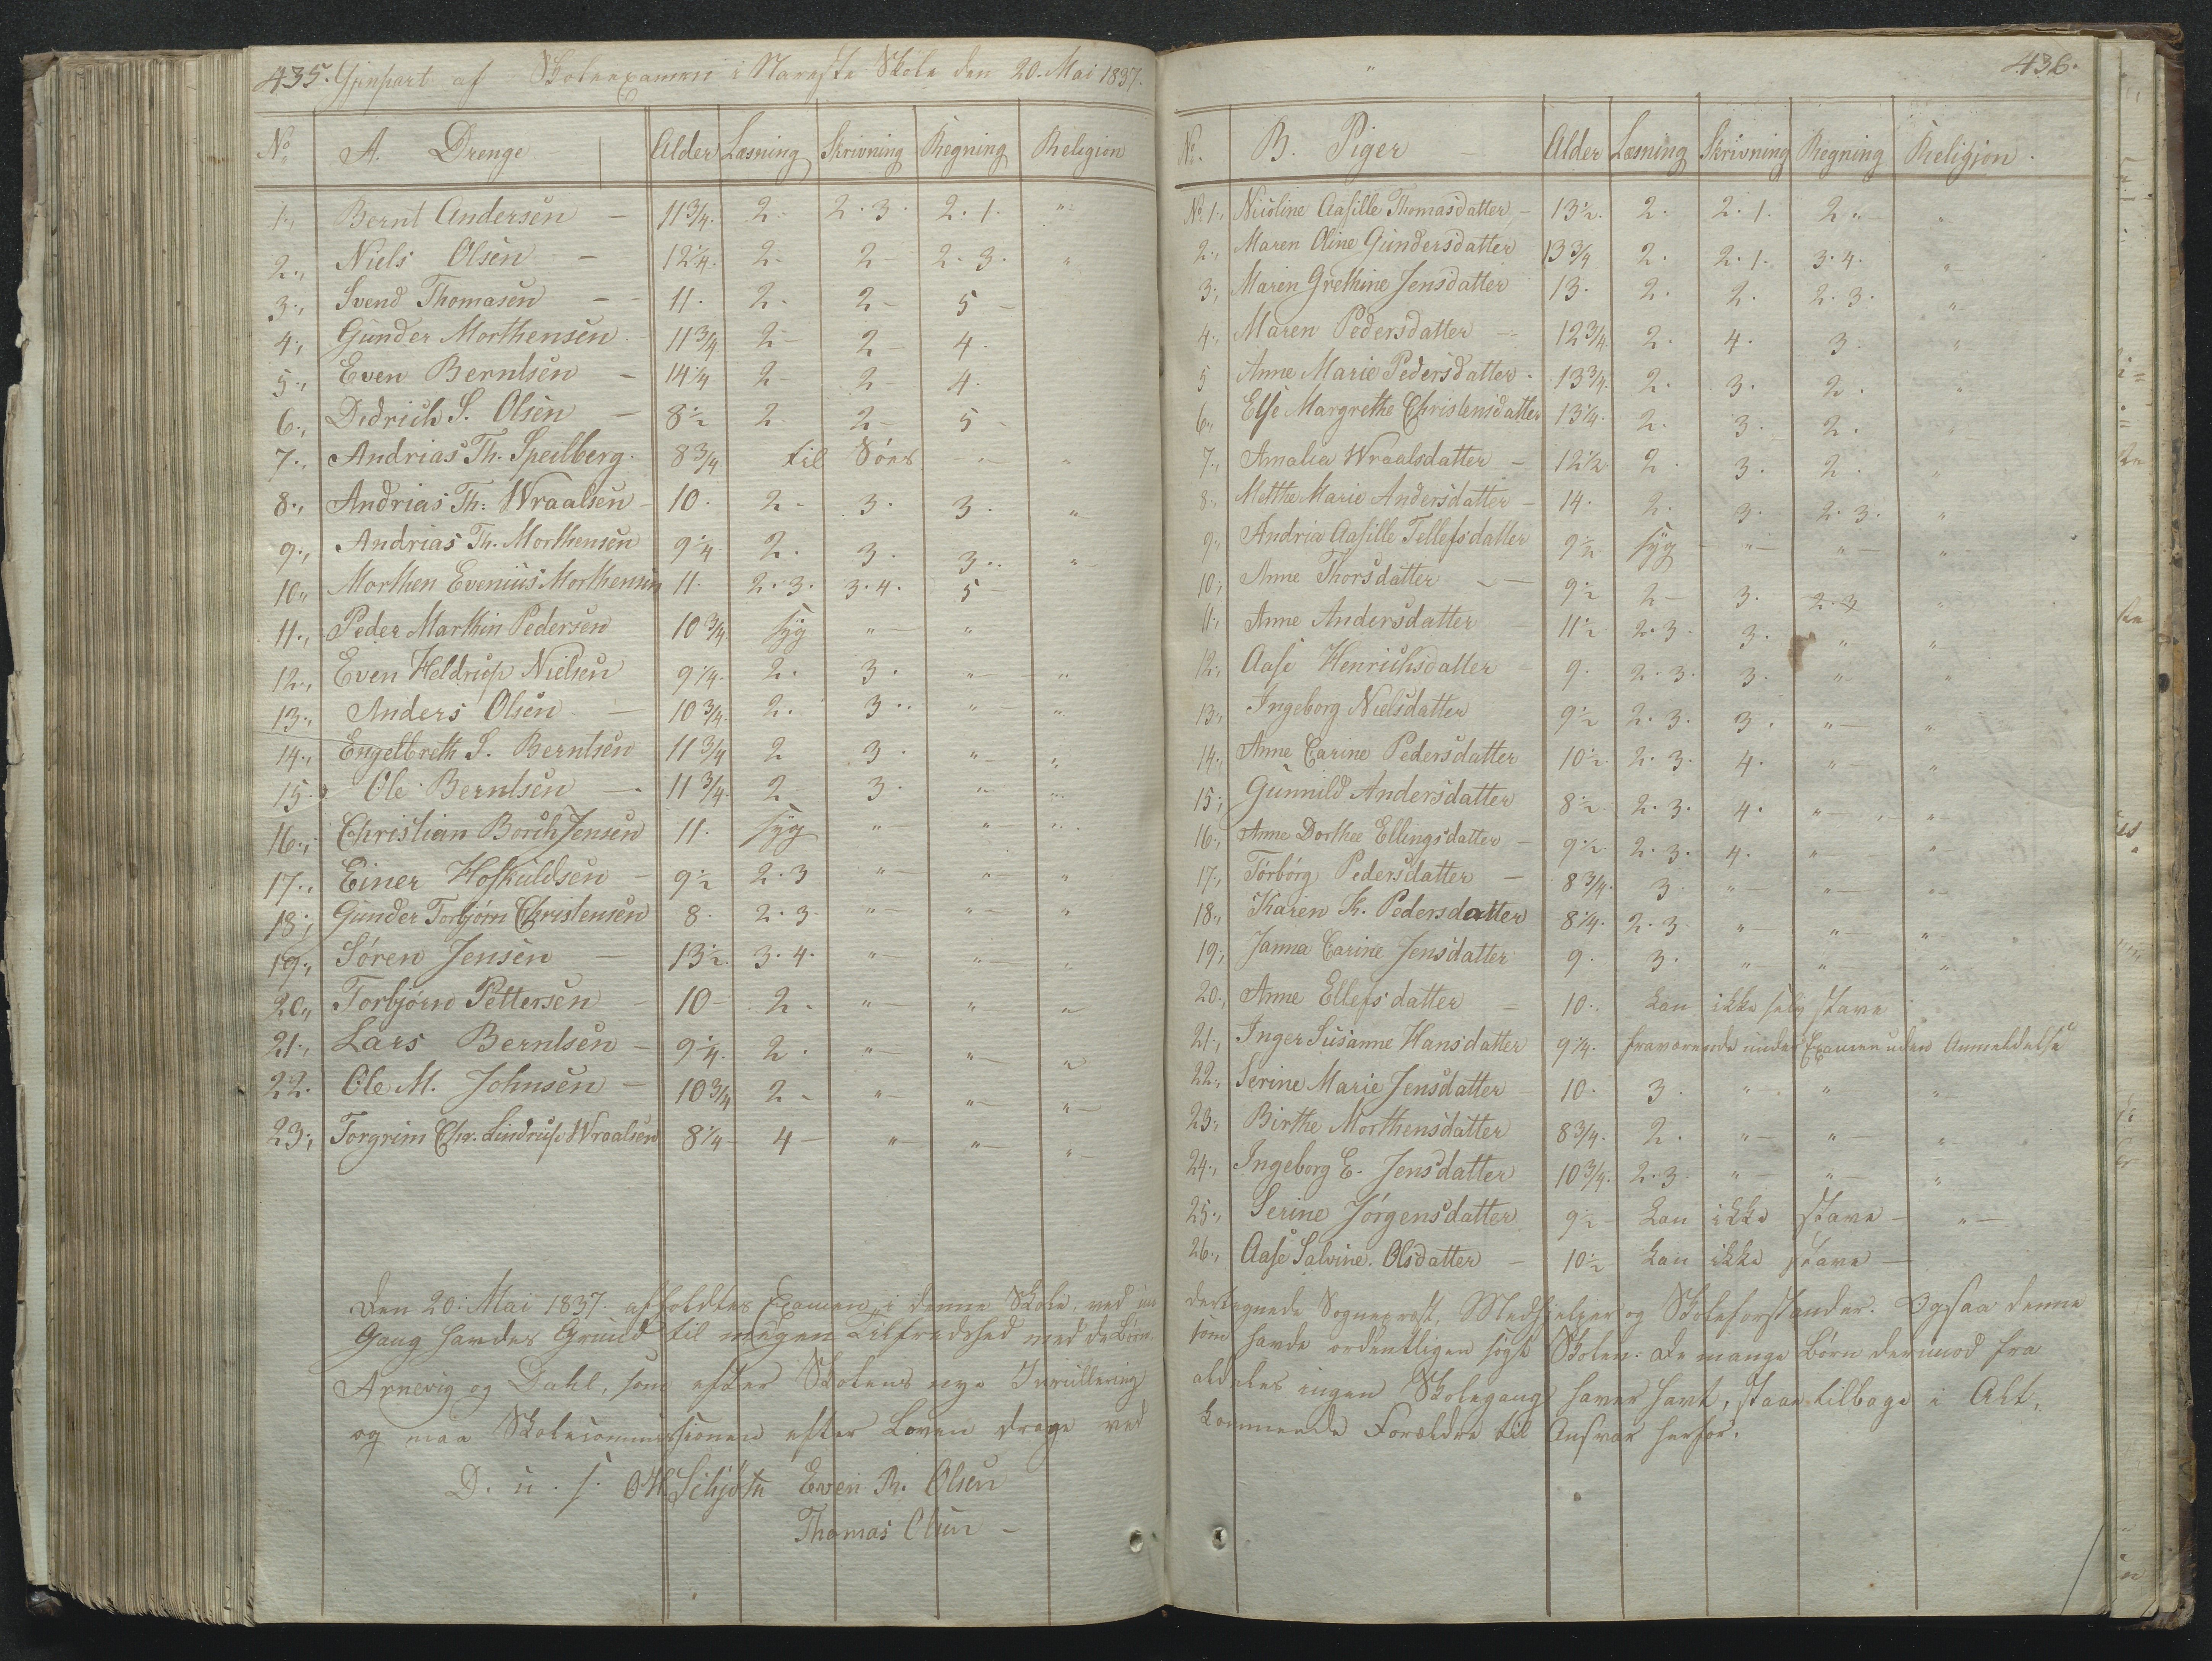 435. Gjenpart af Skoleexamen i Nareste Skole den 20. Mai 1837.
No A. Drenge Alder Læsning Skrivning Regning Religion
1., Bernt Andersen – 11 3/4. 2. 2.3. 2.1. "
2., Niels Olsen – 12 1/4. 2. 2 – 2.3. "
3., Svend Thomasen – 11. 2. 2 – 5 –
4., Gunder Morthensen. 11 3/4 2 – 2 – 4.
5., Even Berntsen – 14 1/4 2 – 2 4.
6., Didrich S. Olsen – 8 1/2 2 2 – 5 –
7., Andrias Th. Speilberg. 8 3/4 til Søes – " – "
8., Andrias Th: Wraalsen – 10. 2 – 3. 3. "
9., Andrias Th. Morthensen 9 1/4 2. 3. 3.. "
10., Morthen Evenius Morthensen 11. 2.3. 3.4. 5 –
11., Peder Marthin Pedersen 10 3/4 syg " – "
12., Even Heldrup Nielsen 9 1/4. 2. 3. " – "
13., Anders Olsen – 10 3/4. 2. 3.. " – "
14., Engelbreth S. Berntsen 11 3/4 2 3. " – "
15., Ole Berntsen – 11 3/4. 2 3. " "
16., Christian Borch Jensen 11. syg " – " "
17., Einer Hofkuldsen – 9 1/2 2.3 " – " – "
18., Gunder Torbjørn Christensen 8. 2.3. " " – "
19., Søren Jensen – 13 1/2. 3.4. " – " – "
20., Torbjørn Pettersen – 10 – 2 – " – " "
21., Lars Berntsen – 9 1/4. 2. " " – "
22. Ole M. Johnsen – 10 3/4 2 – " – " – " –
23., Torgrim Chr. Lindrup Wraalsen 8 1/4 – 4 – " " – " –
436.
No. B. Piger – Alder Læsning Skrivning Regning Religion.
No. 1., Nicoline Aasille Thomasdatter – 13 1/2. 2. 2.1. 2 " "
2., Maren Oline Gundersdatter 13 3/4 2. 2.1. 3.4. "
3., Maren Grethine Jensdatter 13. 2. 2. 2.3. "
4., Maren Pedersdatter – 12 3/4. 2. 4. 3. "
5 Anne Marie Pedersdatter. 13 3/4. 2. 3. 2. "
6., Else Margrethe Christensdatter 13 1/4. 2. 3. 2. "
7., Amalia Wraalsdatter – 12 1/2 2. 3. 2. "
8., Metthe Marie Andersdatter – 14. 2. 3. 2.3. "
9., Andria Aasille Tellefsdatter 9 1/2 syg – " – " – "
10., Anne Thorsdatter – 9 1/2 2 – 3. 2.3 "
11., Anne Andersdatter 11 1/2 2.3. 3. " "
12., Aase Henrichsdatter – 9. 2.3. 3. " "
13., Ingeborg Nielsdatter 9 1/2 2.3. 3. " – "
14., Anne Carine Pedersdatter 10 1/2. 2.3. 4. " – "
15., Gunnild Andersdatter 8 1/2. 2.3. 4. " – "
16., Anne Dorthee Ellingsdatter – 9 1/2. 2.3. 4. " – " –
17., Tørbórg Pedersdatter – 8 3/4. 3. " – " – " –
18., Karen K. Pedersdatter 8 1/4. 2.3. " – " – " –
19., Janna Carine Jensdatter 9. 3. " – " – "
20., Anne Ellefsdatter – 10. kan ikke selv stave
21., Inger Susanne Hansdatter 9 1/4. fraværende under Examen uden Anmeldelse
22., Serine Marie Jensdatter – 10. 3. " " "
23., Birthe Morthensdatter 8 3/4. 2. " – " – "
24., Ingeborg E. Jensdatter 10 3/4. 2.3. " – " – "
25., Serine Jørgensdatter 9 1/2 – kan ikke stave – " –
26., Aase Salvine. Olsdatter – 10 1/2 kan ikke stave –
Den 20. Mai 1837. afholdtes Examen i denne Skole, ved un dertegnede Sognepræst, Medhjelper og Skoleforstander. Ogsaa denne
Gang havdes Grund til megen Tilfredshed med de Børn som havde ordentligen søgt Skolen: De mange Børn derimod fra
Arnevig og Dahl, som efter Skolens nye Inrullering aldeles ingen Skolegang haver havt, staae tilbage i Alt,
og maa Skolecommissionen efter Loven drage ved kommende Forældre til Ansvar herfor.
D. u. s. Even R. Olsen
Thomas Olsen –